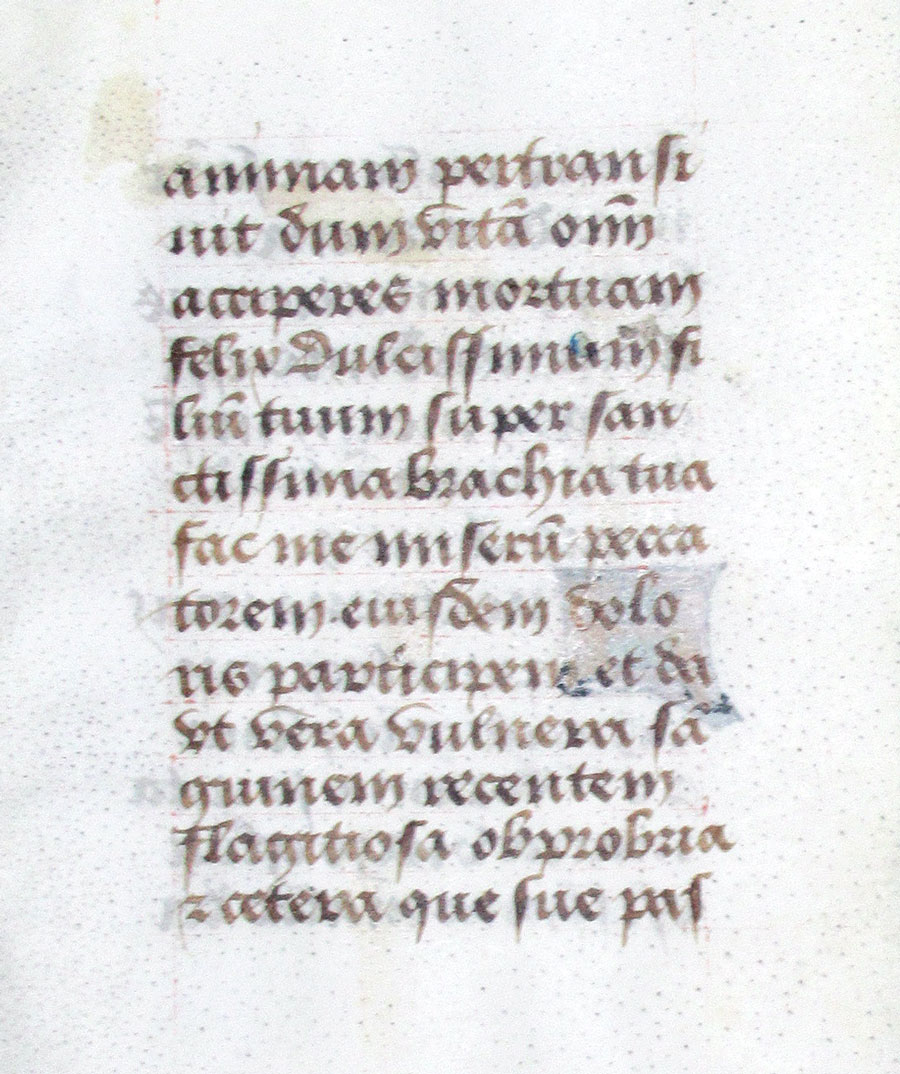 animam pertransi
uit dum vitā om̄
acciperes mortuam
felix dulcissimum fi
liū tuum super san
ctissima brachia tua
fac me miserū pecca
torem eiusdem dolo
ris participem et da
vt vera vulnera sā
guinem recentem
flagitiosa obprobria
⁊ cetera que sue pas